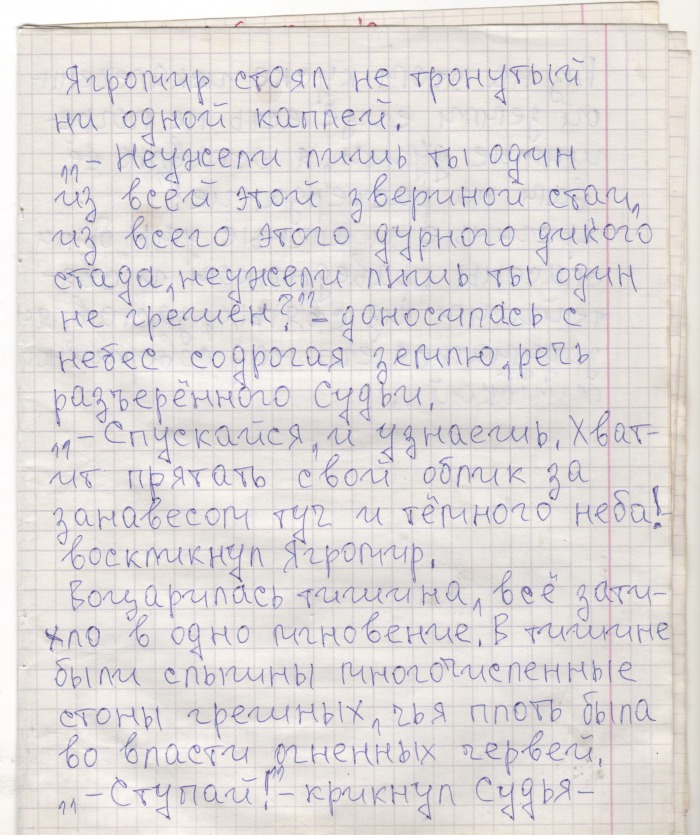 Ягромир стоял не тронутый
ни одной каплей.
„– Неужели лишь ты один
из всей этой звериной стаи,
из всего этого дурного дикого
стада, неужели лишь ты один
не грешен?" – доносилась с
небес содрогая землю, речь
разъерённого Судьи.
„– Спускайся, и узнаешь. Хват-
ит прятать свой облик за
занавесом туч и тёмного неба!
воскликнул Ягромир.
Воцарилась тишина, всё зати-
хло в одно мгновение. В тишине
были слышны многочисленные
стоны грешных, чья плоть была
во власти огненных червей.
„– Ступай!" – крикнул Судья –